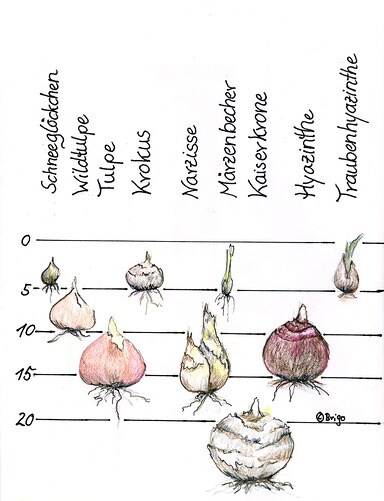 Schneeglöckchen
Wildtulpe
Tulpe
Krokus
Narzisse
Märzenbecher
Kaiserkrone
Hyazinthe
Traubenhyazinthe
0
5
10
15
20
©Brigo